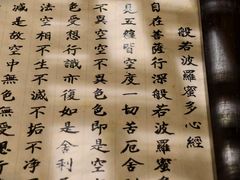 般若波羅蜜多心經
自在菩薩行深般若波羅蜜
見五蘊皆空度一切苦厄舍
不異空空不異色色即是空
色受想行識亦復如是舍利
法空相不生不滅不垢不淨
減是故空中無色無受想行